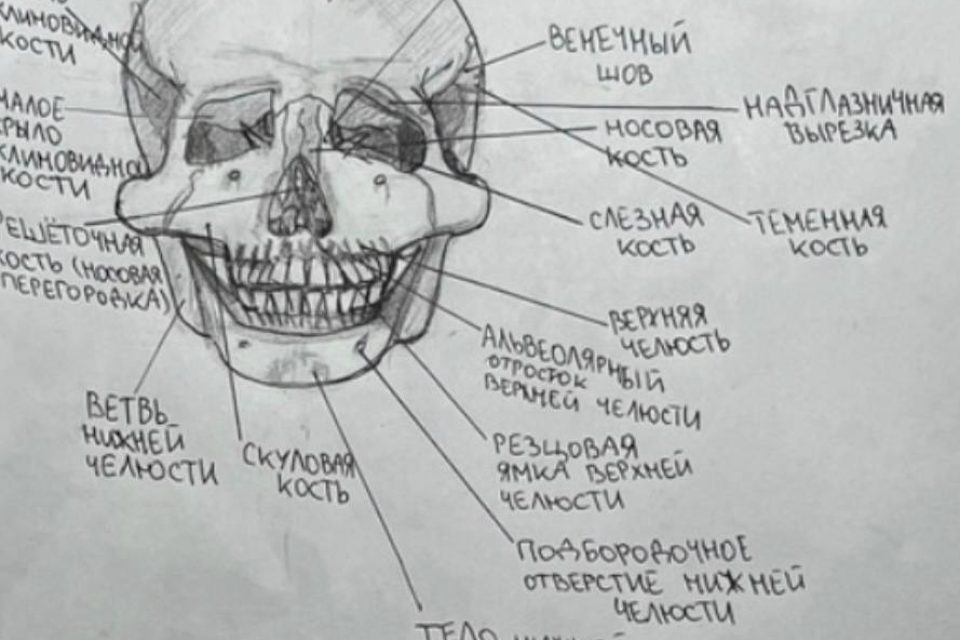 КЛИНОВИДНОЙ
КОСТИ
МАЛОЕ
КРЫЛО
КЛИНОВИДНОЙ
КОСТИ
РЕШЁТОЧНАЯ
КОСТЬ (НОСОВАЯ
ПЕРЕГОРОДКА)
ВЕТВЬ
НИЖНЕЙ
ЧЕЛЮСТИ
СКУЛОВАЯ
КОСТЬ
ВЕНЕЧНЫЙ
ШОВ
НАДГЛАЗНИЧНАЯ
ВЫРЕЗКА
НОСОВАЯ
КОСТЬ
СЛЕЗНАЯ
КОСТЬ
ТЕМЕННАЯ
КОСТЬ
ВЕРХНЯЯ
ЧЕЛЮСТЬ
АЛЬВЕОЛЯРНЫЙ
ОТРОСТОК
ВЕРХНЕЙ ЧЕЛЮСТИ
РЕЗЦОВАЯ
ЯМКА ВЕРХНЕЙ
ЧЕЛЮСТИ
ПОДБОРОДОЧНОЕ
ОТВЕРСТИЕ НИЖНЕЙ
ЧЕЛЮСТИ
ТЕЛО